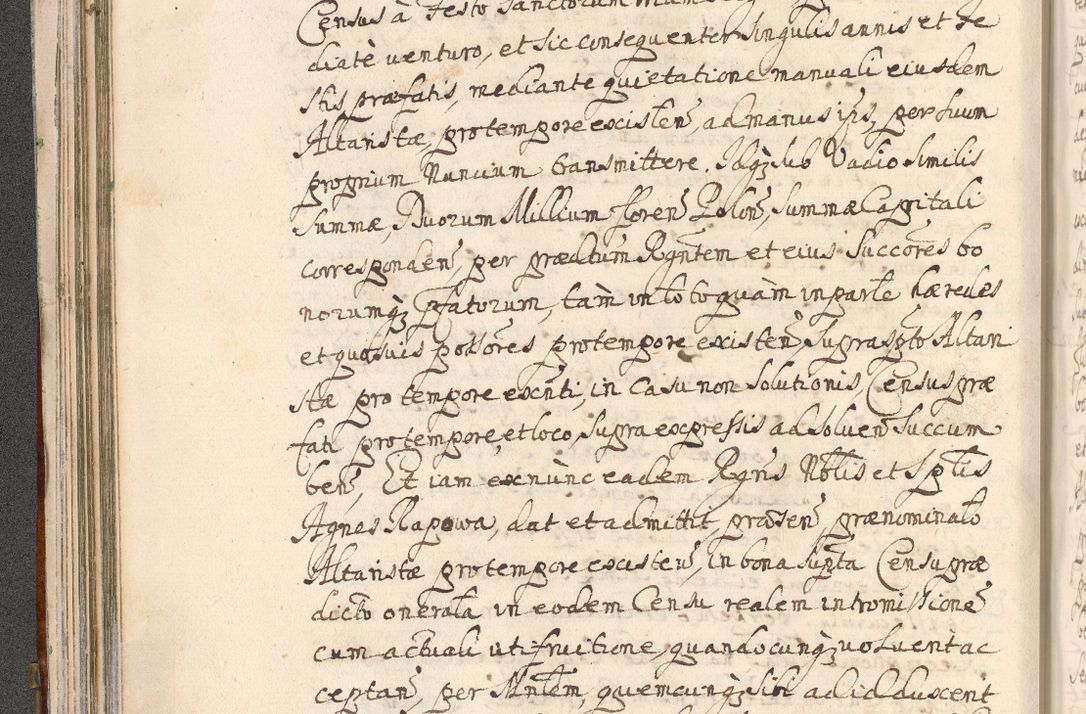 Census à Festo Sanctorum
diatè venturo, et sic consequenter singulis annis et Fe
stis præfatis, mediante quietatione manuali eiusdem
Altaristæ, protempore existen, ad manus ips, per suum
proprium Nuncium transmittere. Idq; sub Vadio similis
summæ, Duorum Millium floren Polon, summæ Capitali
corresponden, per prædtum Rgntem et eius Succores bo
norumq; pfatorum, tàm in toto quàm in parte hæredes
et quosuis possores protempore existen, suprasptto Altari
stæ pro tempore exnti, in casu non solutionis, Census præ
fati protempore, et loco, supra expressis ad soluen succum
ben, Et iam exnùnc eadem Rgns Nblis et Sptlis
Agnes Rapowa, dat et admittit, præsen prænominato
Altaristæ protempore existen, in bona supta Censu præ
dicto onerata in eodem Censu realem intromissione
cum actuali utifruitione, quandocunq; uoluent ac
ceptan, per Mnlem, quemcunq; sibi ad id duxerit